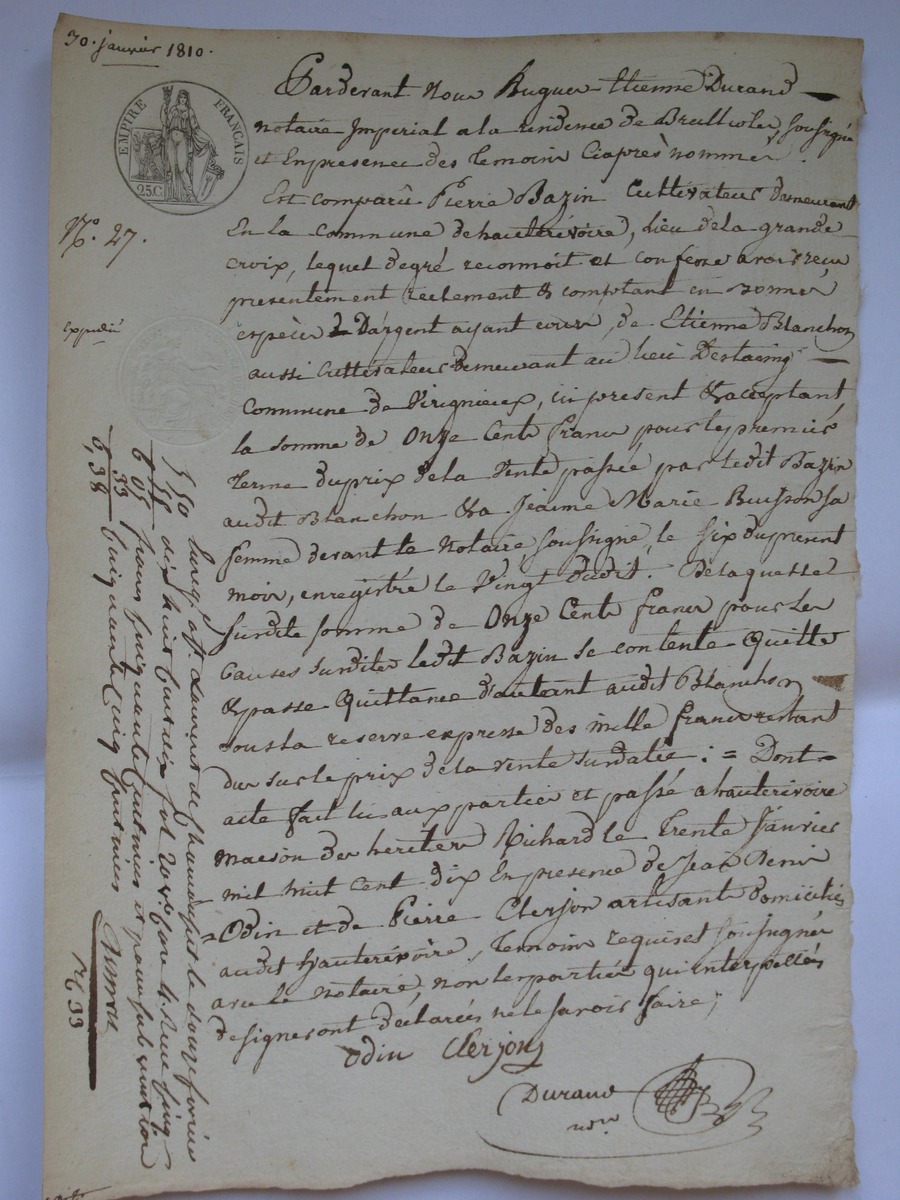 30. janvier 1810.
EMPIRE FRANÇAIS
25C
N.° 27.
expedié
Pardevant Nous Hugues Etienne Durand
notaire Imperial a la residence de Brullioles, soussigné
et En presence des Temoins Ciaprès nommés.
Est comparû Pierre Bazin Cultivateur demeurant
En la Commune de hauterivoire, Lieu de la grande
croix, lequel de gré reconnoit et confesse avoir reçu
presentement réelement & comptant en bonnes
espèces D'argent ayant cours, de Etienne Blanchon
aussi Cultivateur demeurant au lieu Destaing
Commune de Virignieux, ici present & acceptant
la somme de Onze Cent francs, pour le premier
Terme du prix de la Vente passée par ledit Bazin
audit Blanchon & a Jeanne Marie Buisson sa
femme devant le Notaire soussigné, le six du present
mois, enregistré le Vingt dudit. De laquelle
susdite somme de Onze Cent francs pour les
Causes susdites ledit Bazin se contente Quitte
& passe Quittance d'autant audit Blanchon
sous la reserve expresse des mille francs restant
dus sur le prix de la vente susdatée : = Dont
acte fait lu aux parties et passé a hauterivoire
maison des heritiers Richard le Trente Janvier
mil huit cent dix En presence de Jean Denis
= Odin et de Pierre Clerjon artisant domiciliés
audit hauterivoire, Temoins requis et soussignés
avec le Notaire, non les parties qui interpellés
de signer ont déclarées ne le savoir faire ;
Odin Clerjon
Durand
nore
5 50
55
6 05
33
6,38
Enreg. à St Laurent de Chamousset le douze fevrier
1810 dix huit Cent dix fol 20 Vo Case 4. Reçu cinq
francs cinquante Centimes et pour subvention
Cinquante Cinq Centimes